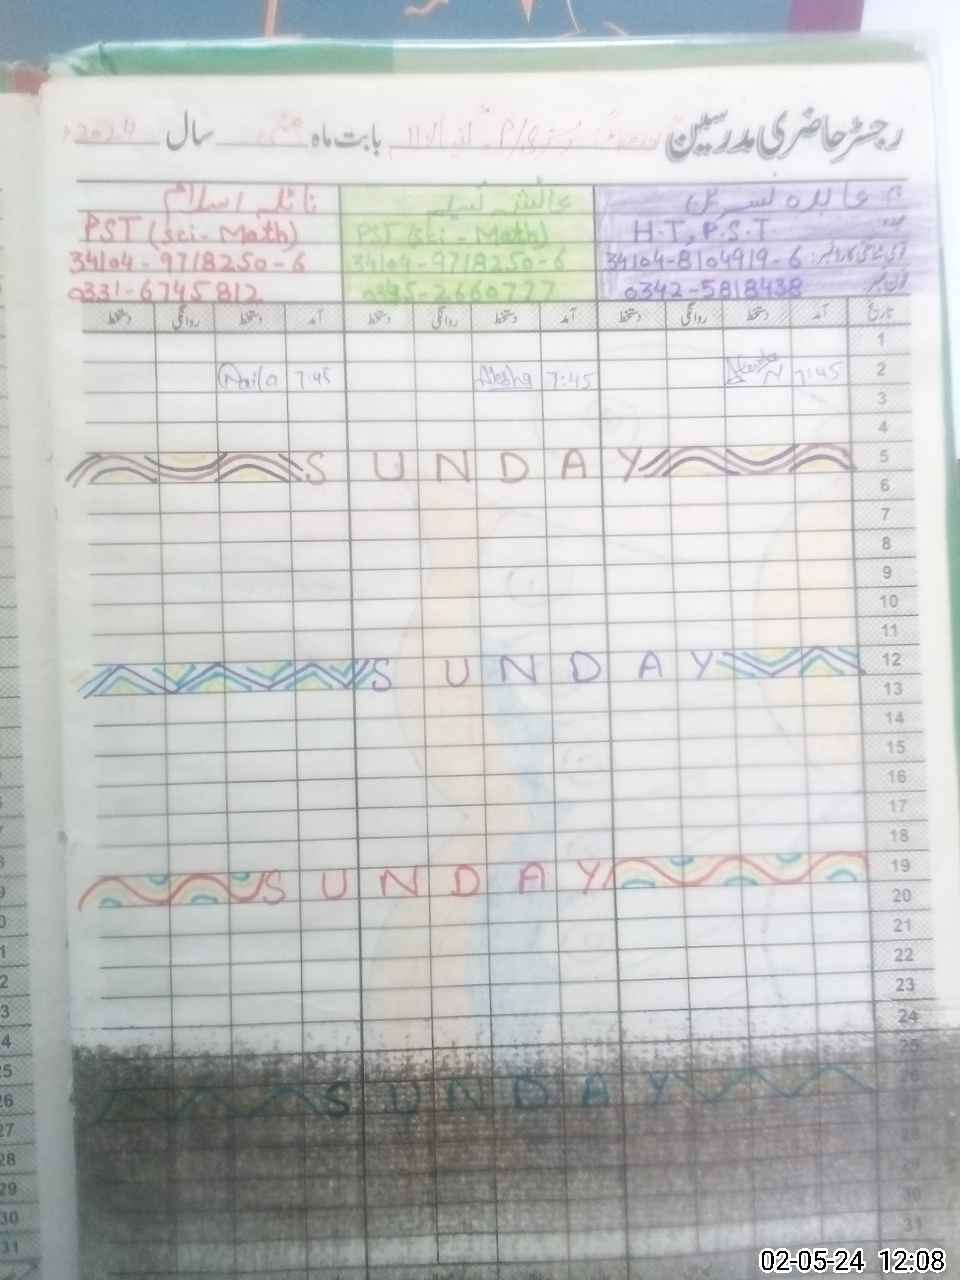 رجسٹر حاضری مدرسین بابت ماہ مئی سال 2024
نام عابدہ نسرین عائشہ نائلہ اسلام
عہدہ: H.T, P.S.T PST (Sci - Math) PST (Sci - Math)
قومی شناختی کارڈ نمبر: 34104-8104919-6 34104-9718250-6 34104-9718250-6
فون نمبر: 0342-5818438 0345-2660777 0331-6745812
تاریخ آمد دستخط روانگی دستخط آمد دستخط روانگی دستخط آمد دستخط روانگی دستخط
1
2 7:45 7:45 Alesha 7:45 Naila
3
4
5 SUNDAY
6
7
8
9
10
11
12 SUNDAY
13
14
15
16
17
18
19 SUNDAY
20
21
22
23
24
25
SUNDAY
28
30
31
25
26
27
28
29
30
31
02-05-24 12:08